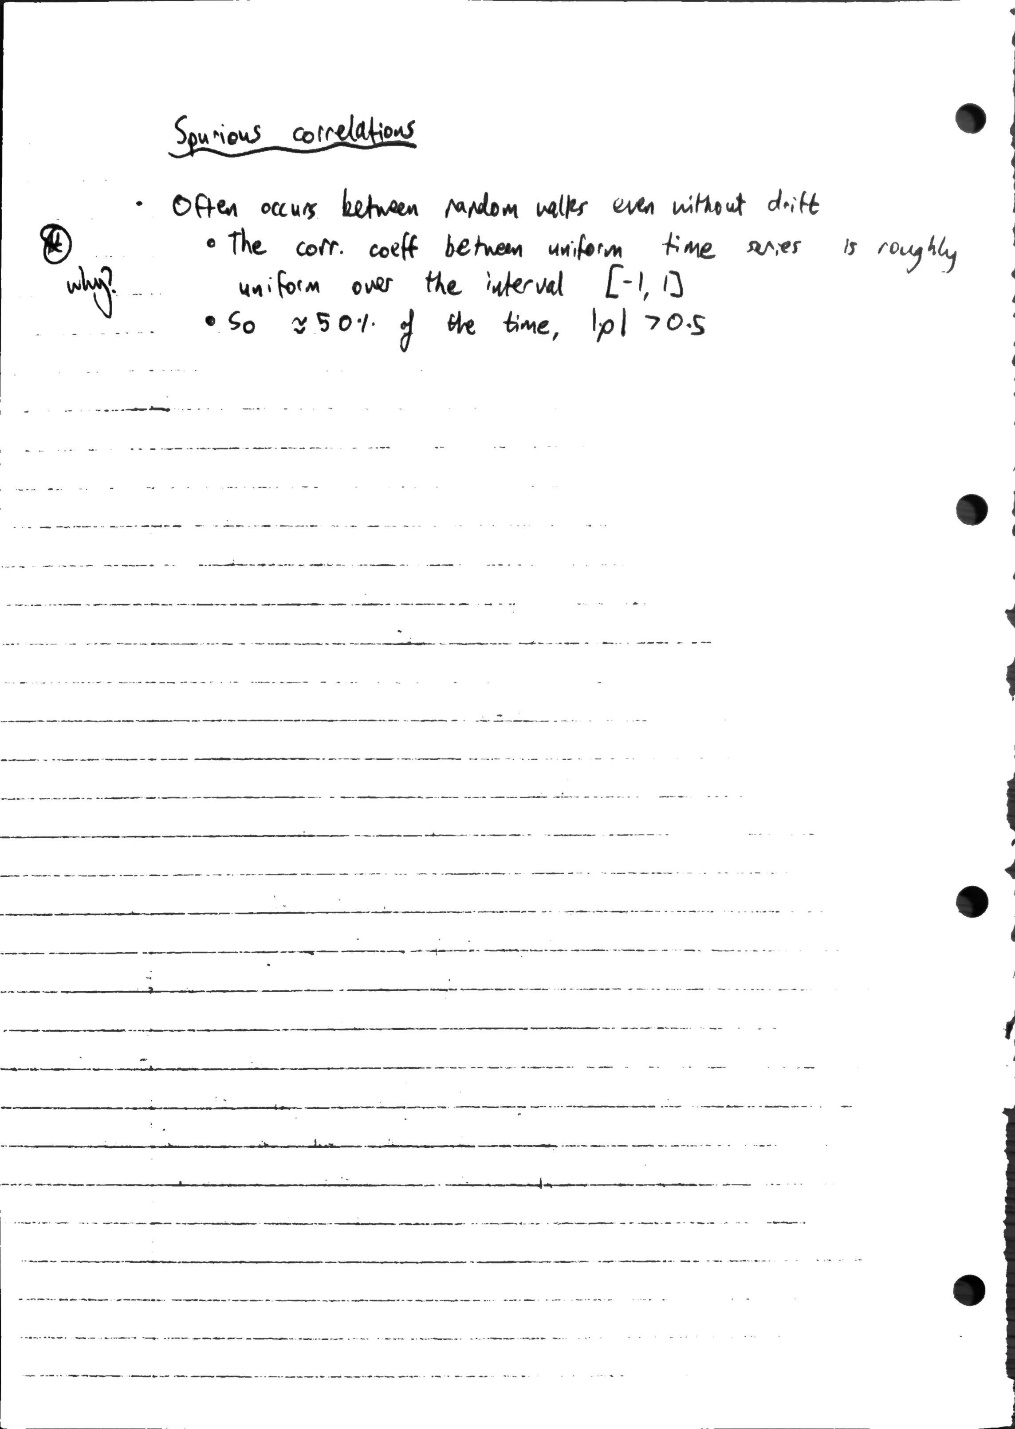 Spurious correlations
· Often occurs between random walks even without drift
• The corr. coeff between uniform time series is roughly
why?
uniform over the interval [-1, 1]
• So ≈ 50% of the time, |ρ| > 0.5